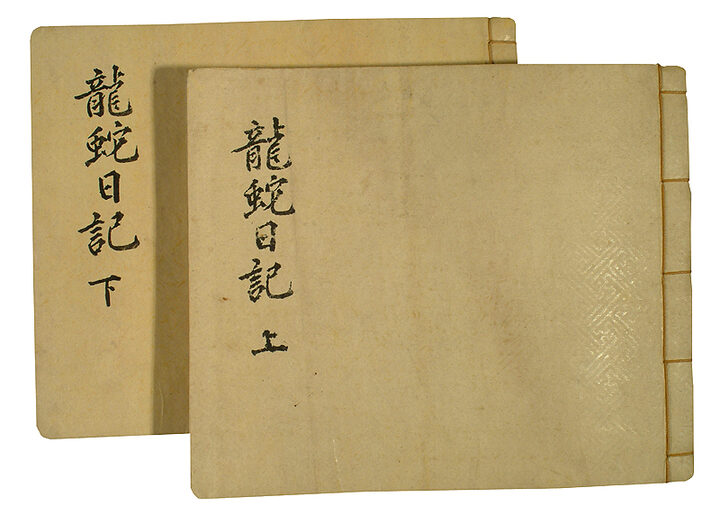 龍蛇日記 上
龍蛇日記 下